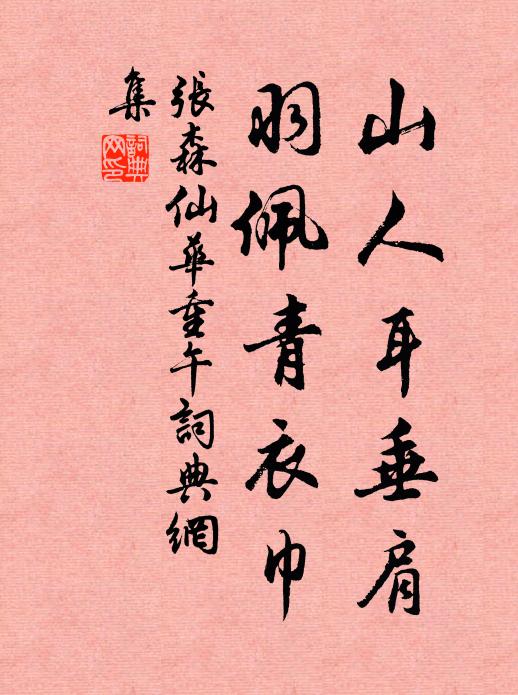 山人耳垂肩
羽佩青衣巾
張森仙華重午詞典網
集
詞典網印